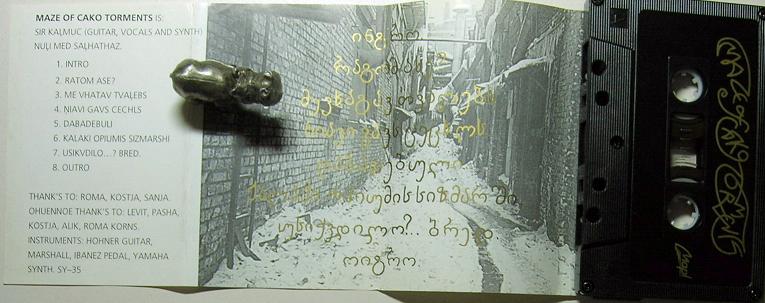 MAZE OF CAKO TORMENTS IS:
SIR KAĻMUC (GUITAR, VOCALS AND SYNTH)
NUĻI MED SAĻHATHAZ.
1. INTRO
2. RATOM ASE?
3. ME VHATAV TVAĻEBS
4. NIAVI GAVS CECHLS
5. DABADEBULI
6. KALAKI OPIUMIS SIZMARSHI
7. USIKVDILO...? BRED.
8. OUTRO
THANK'S TO: ROMA, KOSTJA, SANJA.
OHUENNOE THANK'S TO: LEVIT, PASHA,
KOSTJA, ALIK, ROMA KORNS.
INSTRUMENTS: HOHNER GUITAR,
MARSHALL, IBANEZ PEDAL, YAMAHA
SYNTH. SY-35
ინტრო
რატომ ასე?
მე ვხატავ თვალებს
ნიავი გავს ცეცხლს
დაბადებული
ქალაქი ოპიუმის სიზმარში
უსიქვდილო?.. ბრედ